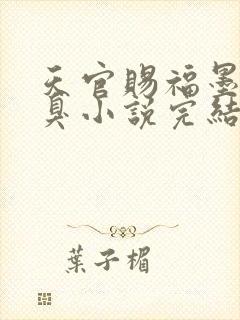 天官賜福墨
臭小說完結
葉子楣